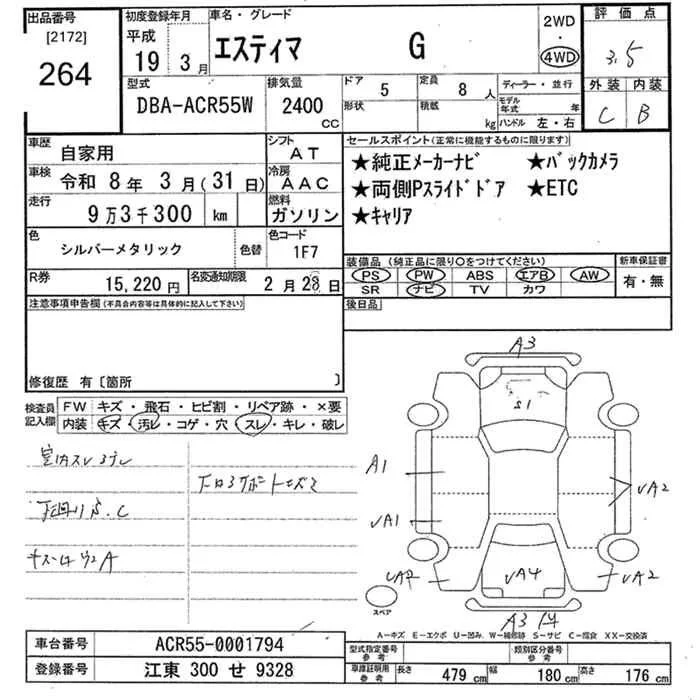 出品番号
[2172]
264
初度登録年月
平成
19 3月
車名・グレード
エスティマ G
2WD
・
4WD
評価点
3.5
外装 内装
C B
型式
DBA-ACR55W
排気量
2400
cc
ドア 5
形状
定員 8 人
積載 kg
ディーラー・並行
モデル年式 年
ハンドル 左・右
車歴
自家用
シフト
AT
車検
令和 8年 3月(31日)
冷房
AAC
走行
9万3千300 km
燃料
ガソリン
色
シルバーメタリック
色替
色コード
1F7
セールスポイント(正常に機能するものに限ります)
★純正メーカーナビ ★バックカメラ
★両側Pスライドドア ★ETC
★キャリア
装備品(純正品に限り○をつけてください)
PS PW ABS エアB AW
SR ナビ TV カワ
新車保証書
有・無
後日品
R券
15,220円
名変通知期限
2月28日
注意事項申告欄(不具合内容等は具体的に記入して下さい)
修復歴 有〔箇所 〕
検査員記入欄
FW キズ・飛石・ヒビ割・リペア跡・×要
内装 キズ・汚レ・コゲ・穴・スレ・キレ・破レ
A3
S1
A1
UA2
UA4
UA2
A3
スペア
A-キズ E-エクボ U-凹み W-補修跡 S-サビ C-腐食 XX-交換済
車台番号
ACR55-0001794
登録番号
江東 300 せ 9328
型式指定番号
参考
類別区分番号
参考
車庫証明用
参考
長さ 479 cm 幅 180 cm 高さ 176 cm